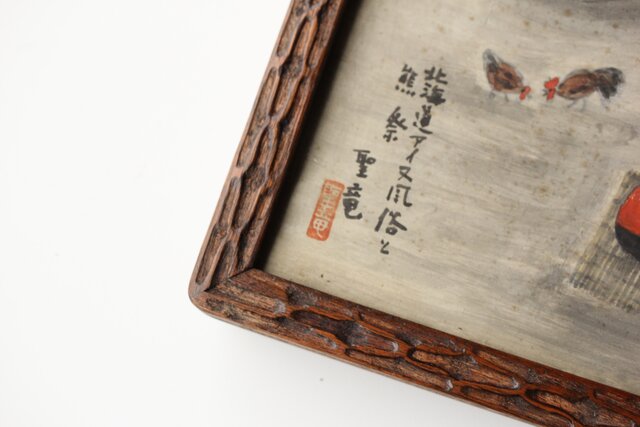 北海道アイヌ風俗と
熊祭
聖竜